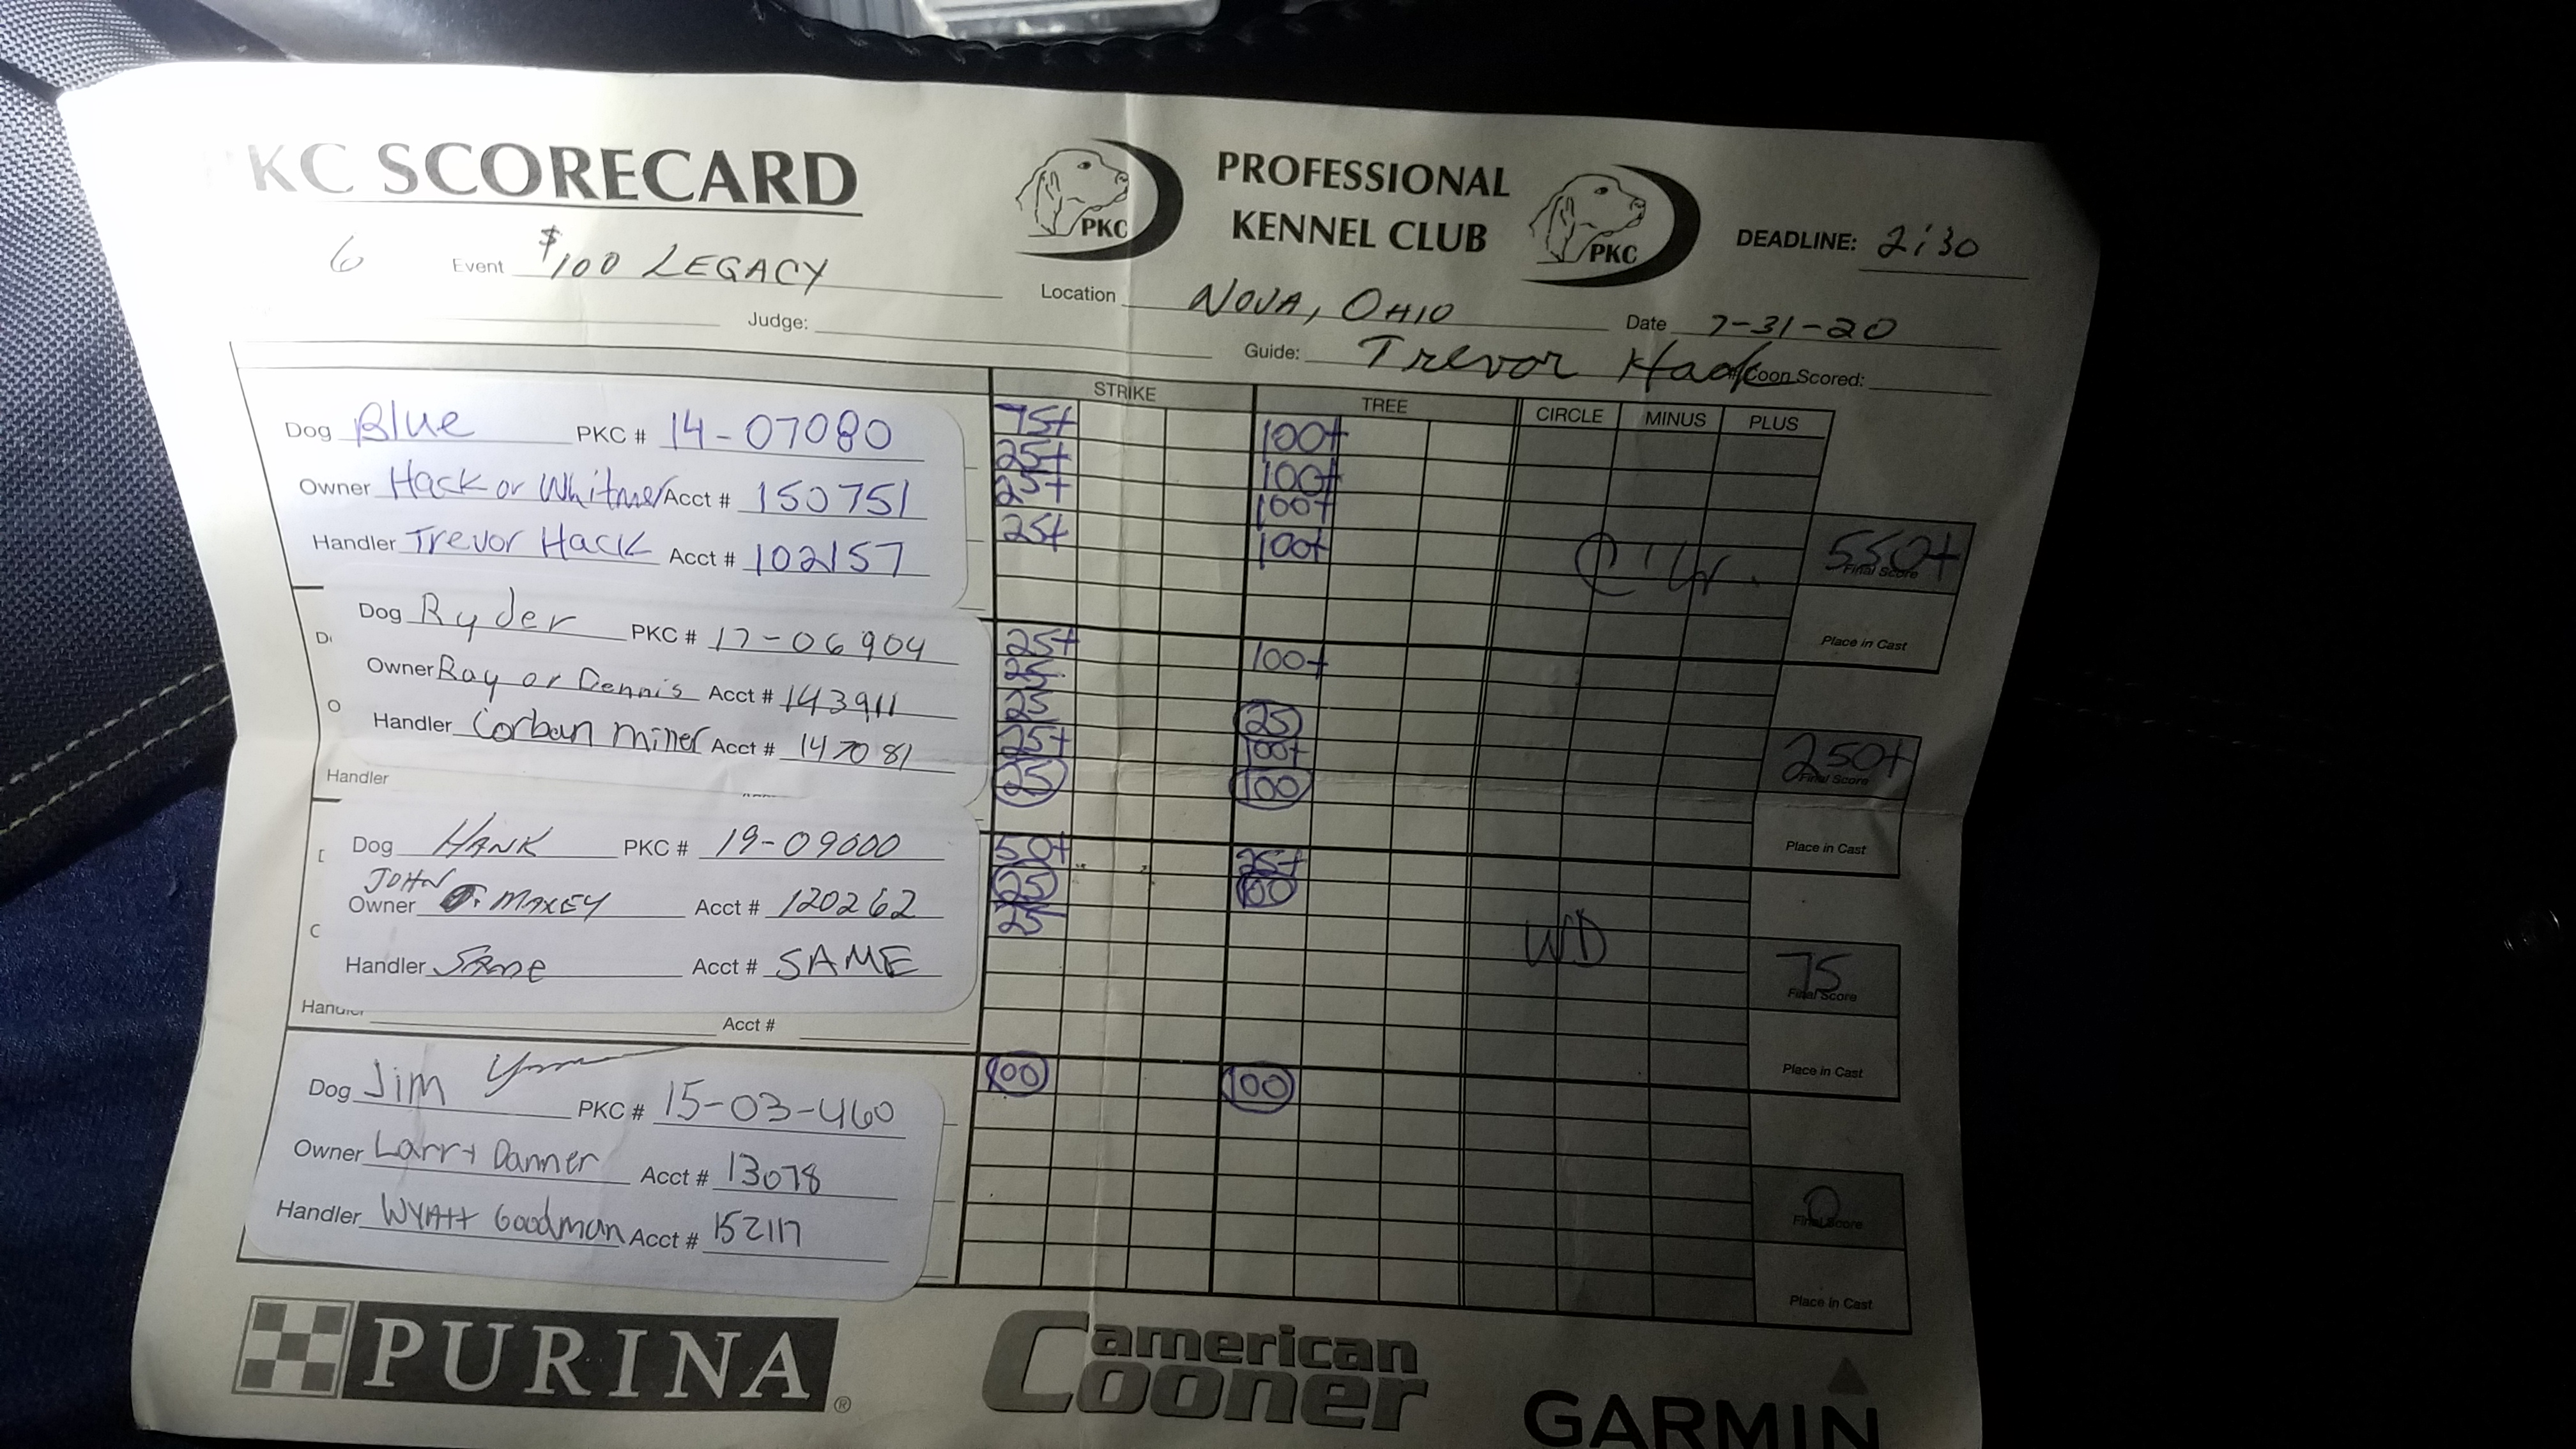 KC SCORECARD
PKC
PROFESSIONAL
KENNEL CLUB
PKC
DEADLINE: 2:30
6 Event $100 LEGACY
Location NOVA, OHIO
Date 7-31-20
Judge:
Guide: Trevor Hack
Coon Scored:
STRIKE TREE CIRCLE MINUS PLUS
Dog Blue PKC # 14-07080
Owner Hack or Whitmer Acct # 150751
Handler Trevor Hack Acct # 102157
75+ 100+
25+ 100+
25+ 100+
25+ 100+
550+
Final Score
Place in Cast
Dog Ryder PKC # 17-06904
Owner Ray or Dennis Acct # 143911
Handler Corban Miller Acct # 147081
Handler
25+ 100+
25
25 25
25+ 100+
25 100
250+
Final Score
Place in Cast
Dog HANK PKC # 19-09000
JOHN
Owner MAXEY Acct # 120262
Handler SAME Acct # SAME
Acct #
50+ 25+
25 100
25
WD
75
Final Score
Place in Cast
Dog Jim PKC # 15-03-460
Owner Larry Danner Acct # 13078
Handler WYAtt Goodman Acct # 152117
100 100
0
Final Score
Place in Cast
PURINA
american
Cooner
GARMIN